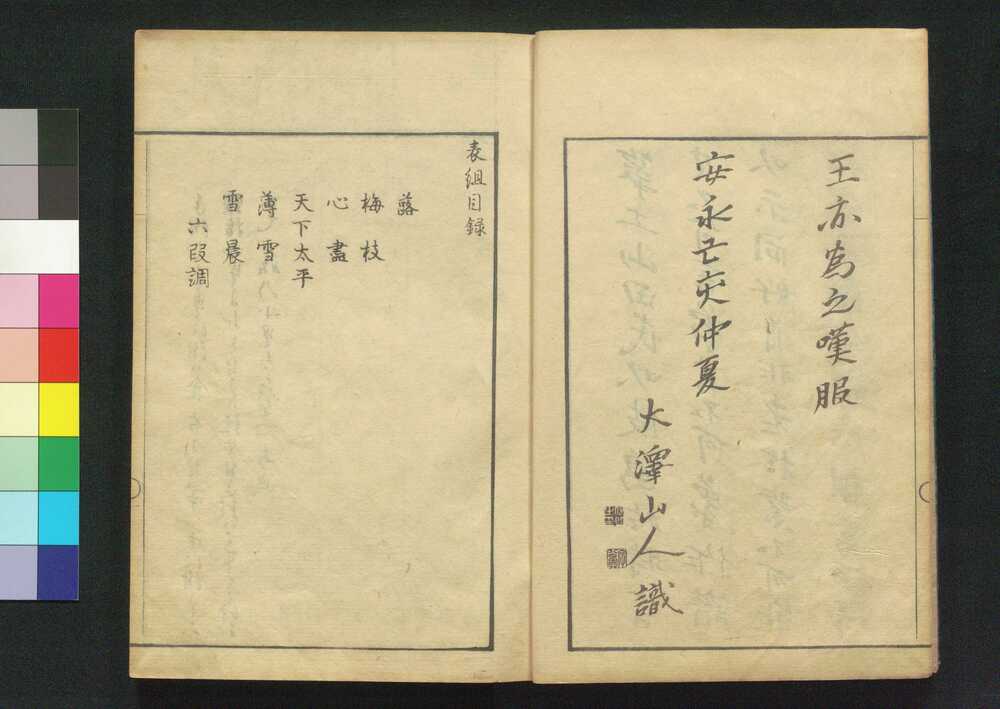 王亦為之嘆服
安永亡夾仲夏
大澤山人識
表組目録
蕗
梅枝
心盡
天下太平
薄雪
雪晨
六段調